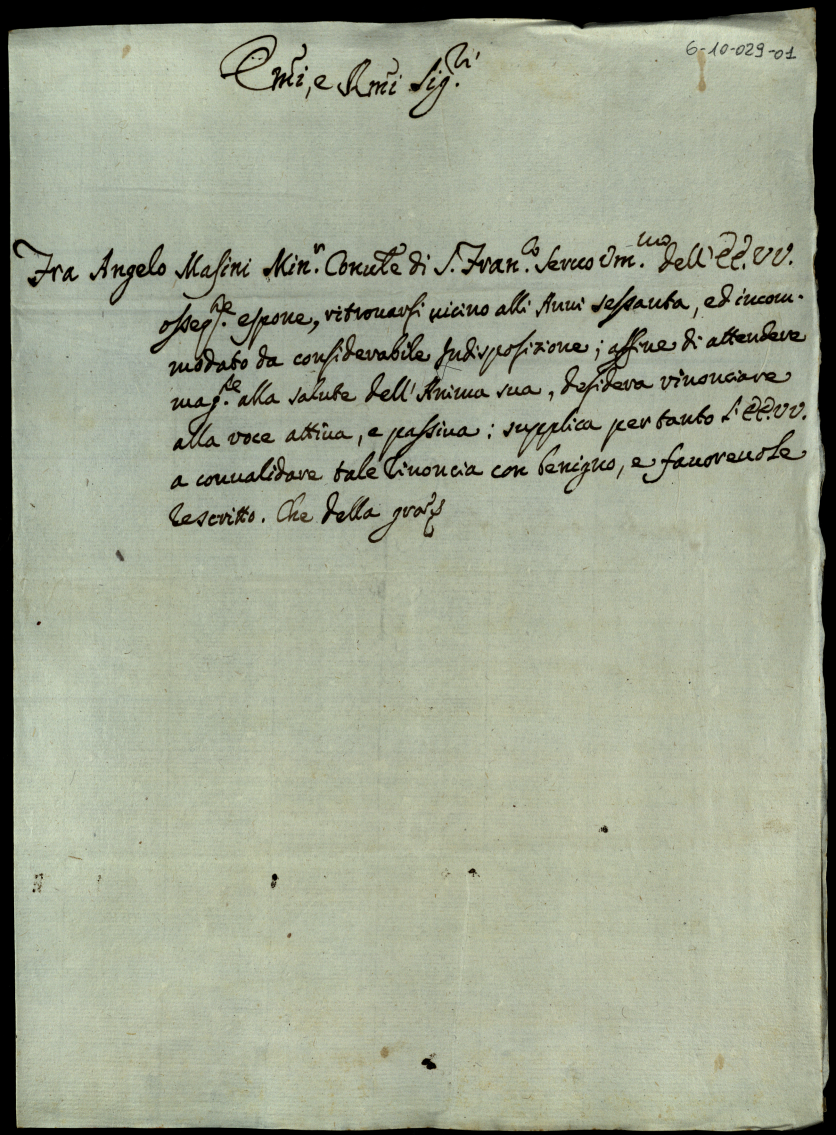 6-10-029-01
Emi, e Rmi Sig.ri
Fra Angelo Masini Min.r Conu.le di S. Fran.co Seruo Vm.mo dell' EE. VV.
osseq.te espone, ritrouarsi uicino alli Anni sessanta, ed incom-
modato da considerabile Indisposizione; affine di attendere
mag.te alla salute dell' Anima sua, desidera rinonciare
alla voce attiua, e passiua; supplica per tanto l' EE. VV.
a conualidare tale rinoncia con benigno, e fauoreuole
rescritto. Che della gra